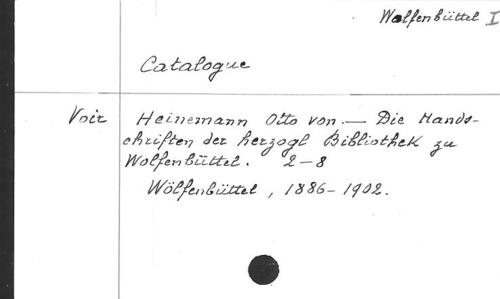 Wolfenbüttel I
Catalogue
Voir Heinemann Otto von. — Die Hands-
chriften der herzogl Bibliothek zu
Wolfenbüttel. 2-8
Wölfenbüttel, 1886-1902.